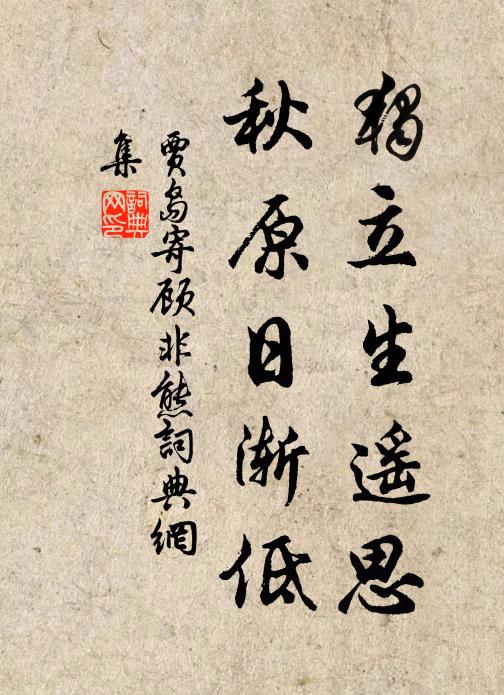 獨立生遥思
秋原日漸低
賈島寄顾非熊詞典網
集
詞典
网印